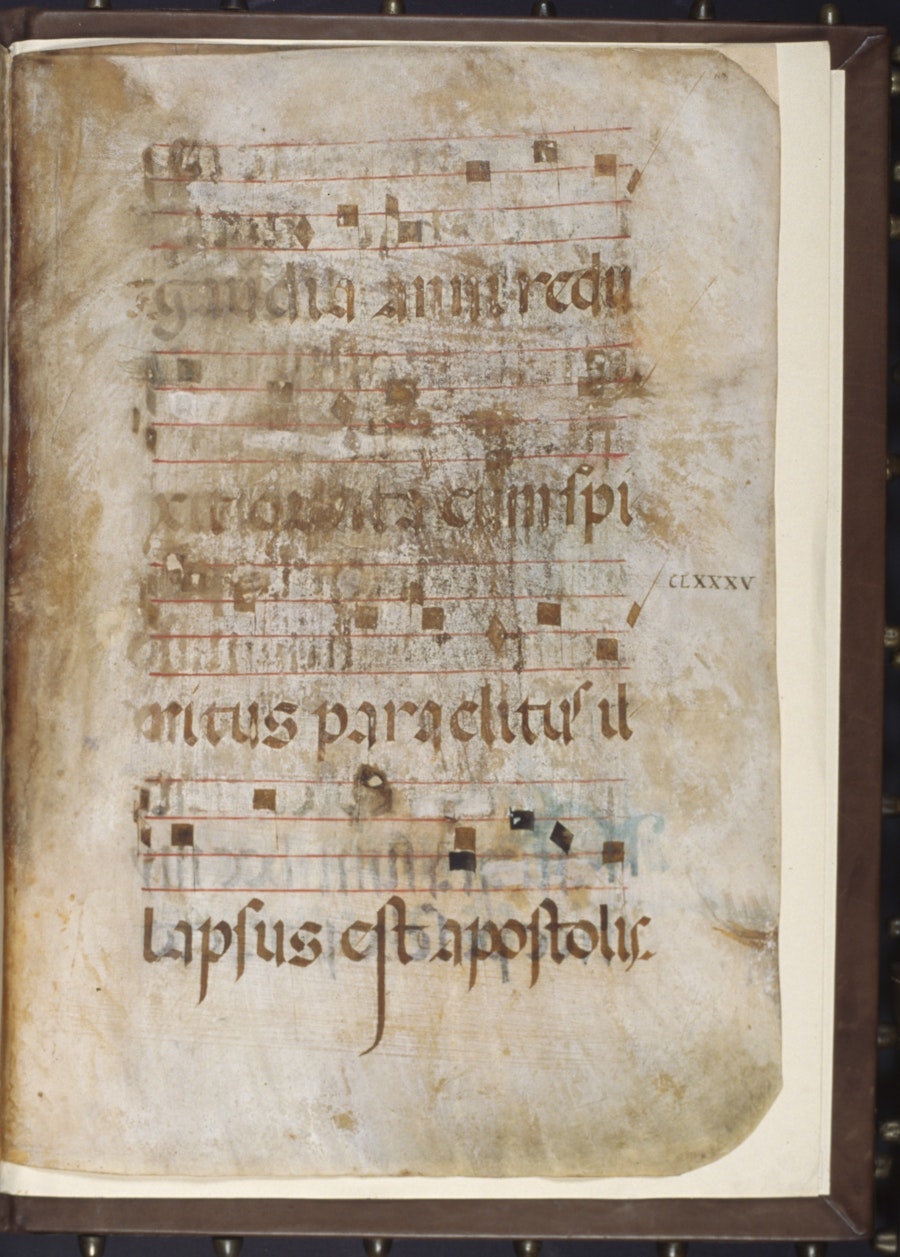 gaudia anni redu
xit orbita cum spi
CLXXXV
ritus paraclitus il
lapsus est apostolis.